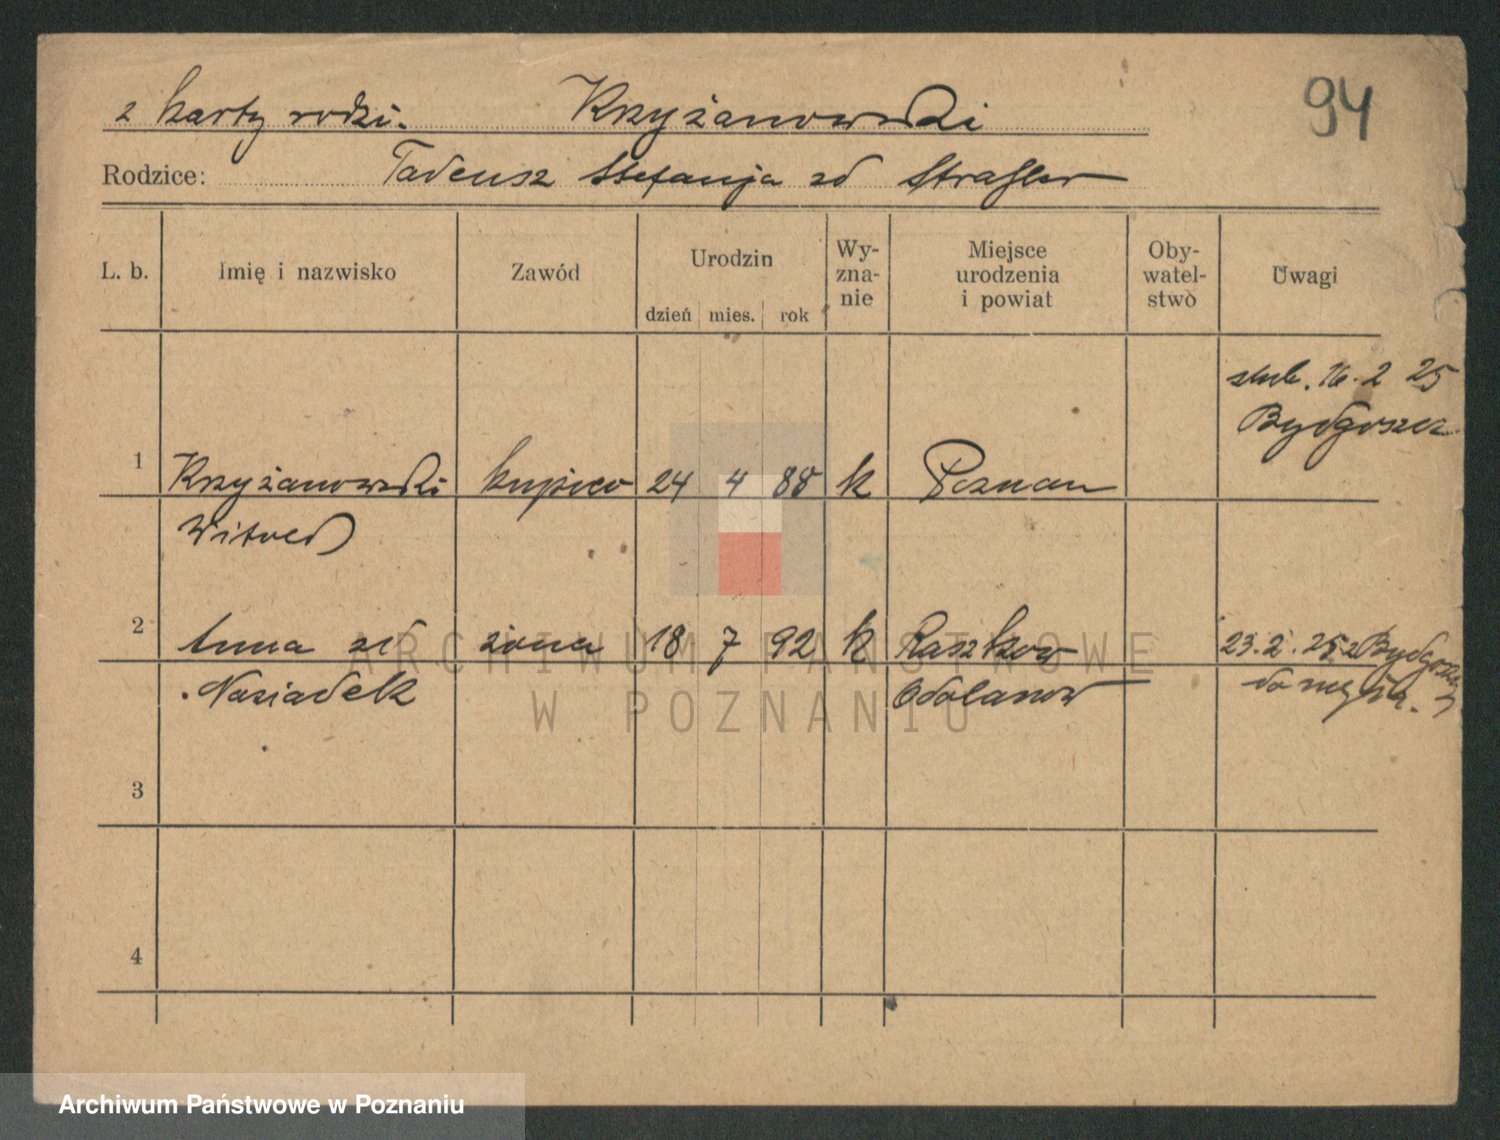 z karty rodzi. Krzyżanowski
94
Rodzice: Tadeusz Stefanja zd Strahler
L. b. Imię i nazwisko Zawód Urodzin dzień mies. rok Wy-zna-nie Miejsce urodzenia i powiat Oby-watel-stwo Uwagi
ślub. 16. 2 25
Bydgoszcz
1 Krzyżanowski kupiec 24 4 88 k Poznań
Witold
2 Anna zd żona 18 7 92 k Raszków 23. 2. 25 z Bydgoszczy
Nasiadek Odolanów do męża.
3
4
ARCHIWUM PAŃSTWOWE
W POZNANIU
Archiwum Państwowe w Poznaniu